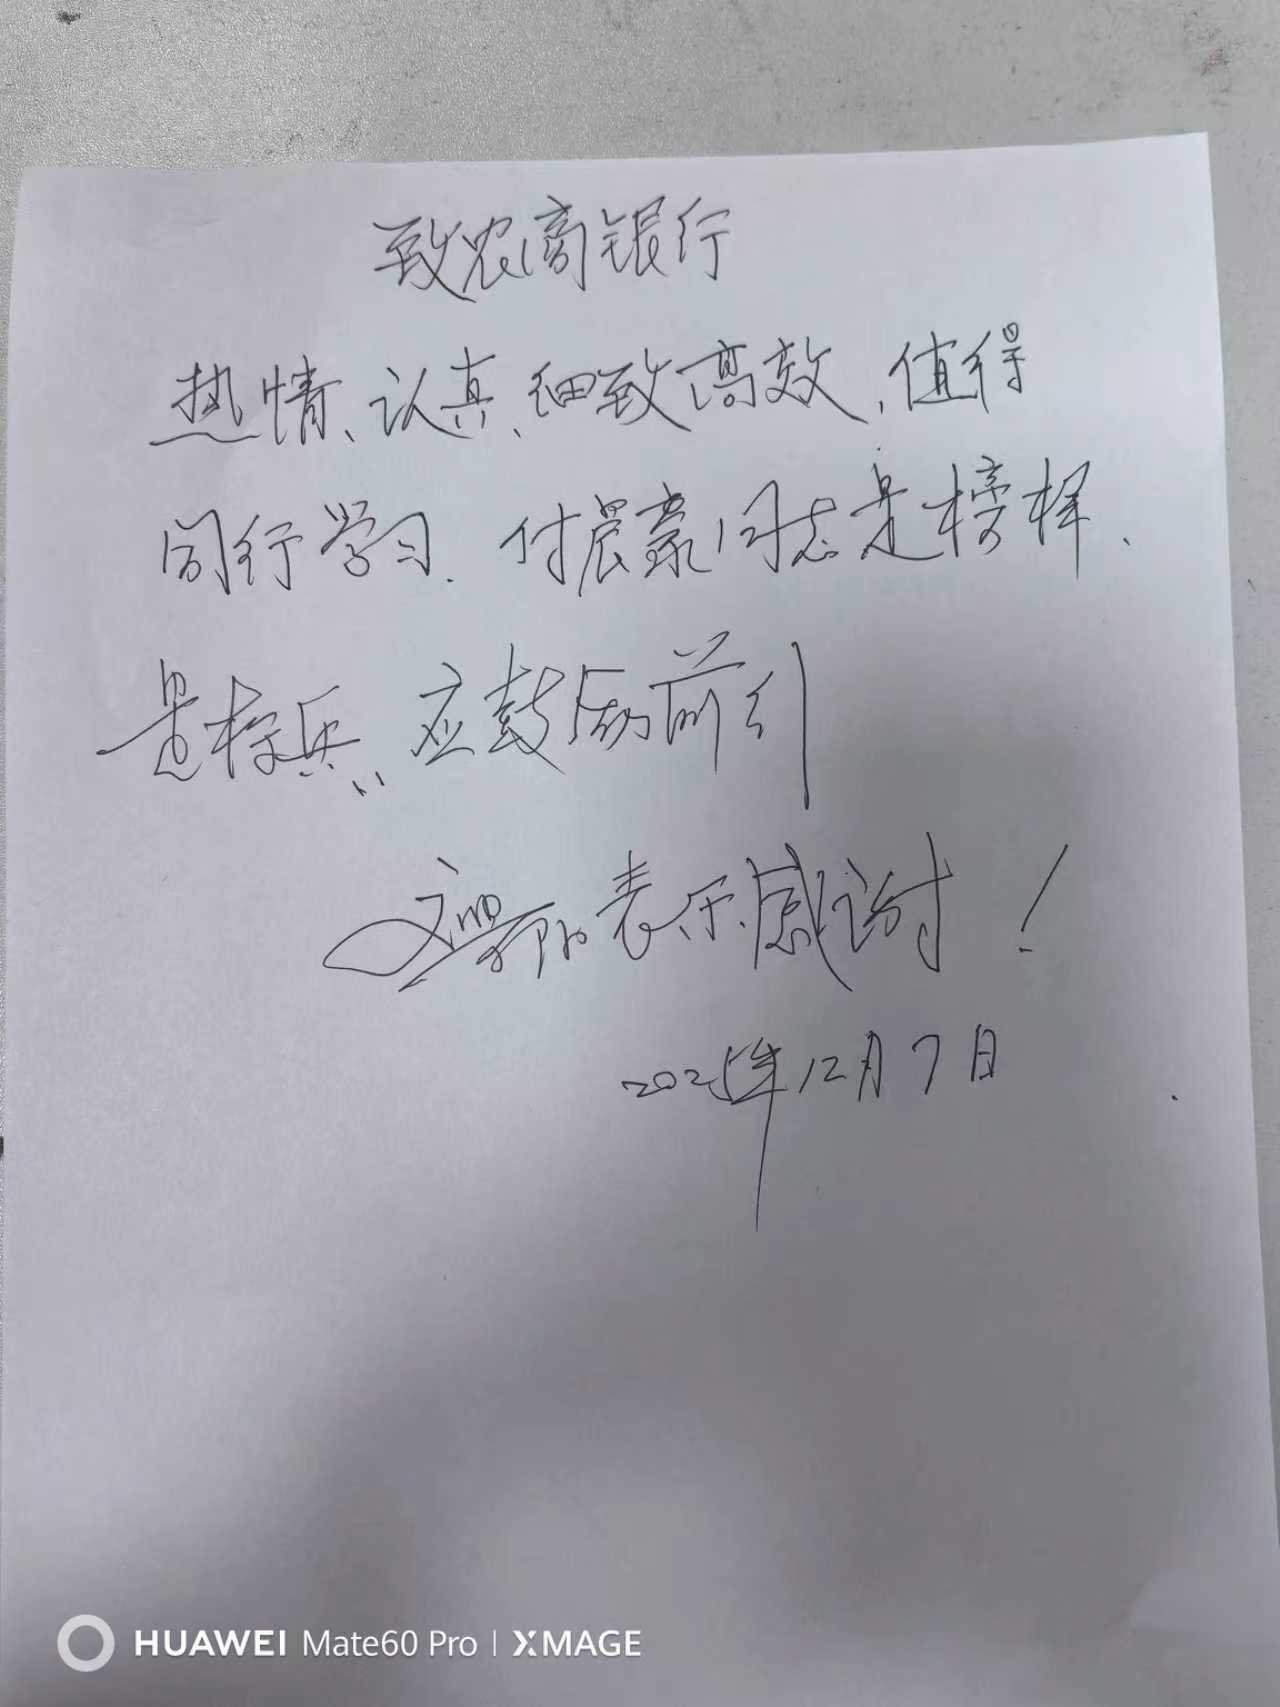 致农商银行
热情、认真、细致高效,值得
同行学习.付晨豪同志是榜样、
是标兵,应鼓励前引
表示感谢!
2025年12月7日
HUAWEI Mate60 Pro | XMAGE